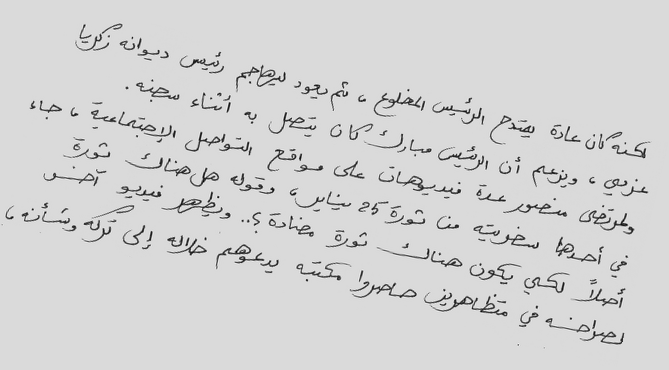 لكنه كان عادة يمتدح الرئيس المخلوع ، ثم يعود ليهاجم رئيس ديوانه زكريا
عزمي ، ويزعم أن الرئيس مبارك كان يتصل به أثناء سجنه .
ولمرتضى منصور عدة فيديوهات على مواقع التواصل الإجتماعية ، جاء
في أحدها سخريته من ثورة 25 يناير ، وقوله هل هناك ثورة
أصلاً لكي يكون هناك ثورة مضادة ؟.. ويظهر فيديو آخر
لصراخه في متظاهرين حاصروا مكتبه يدعوهم خلاله إلى تركه وشأنه ،